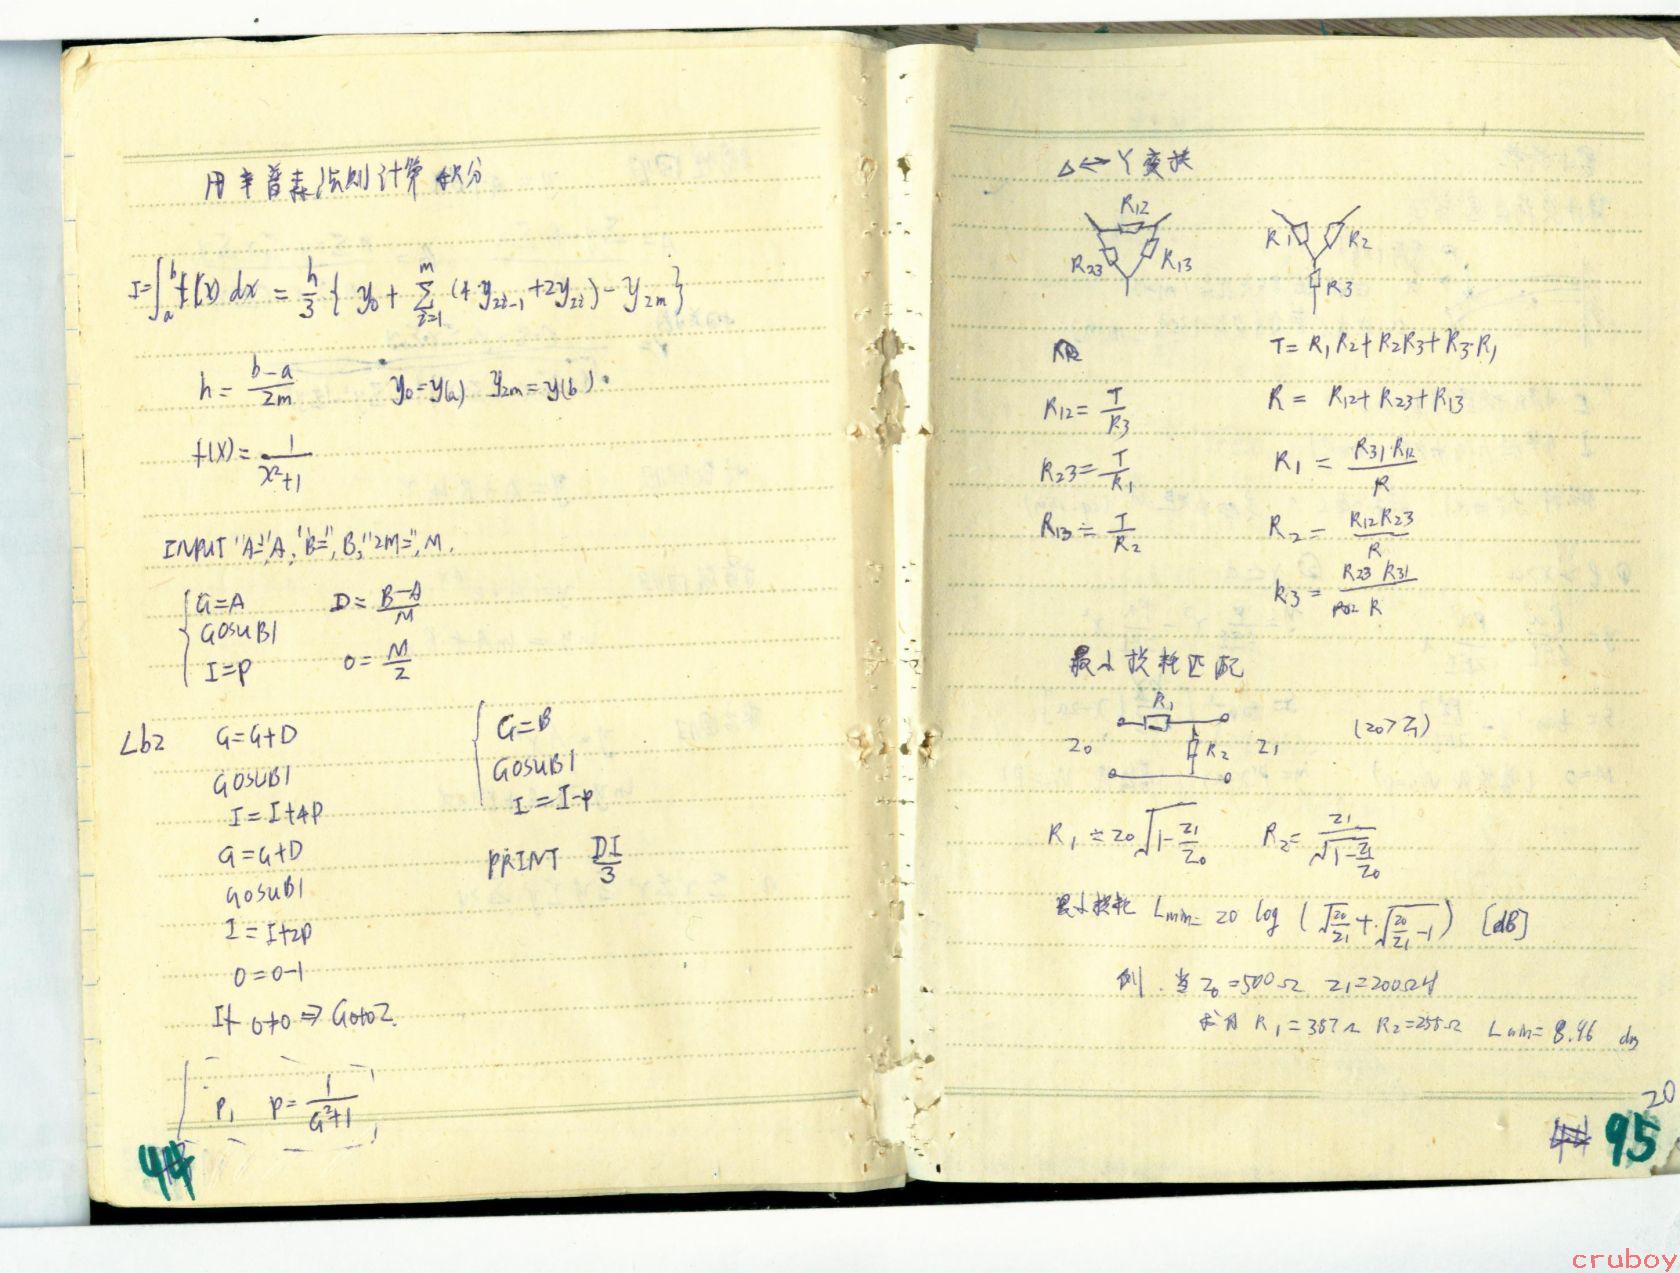 用辛普森法则计算积分
I=∫ₐᵇ f(x) dx = h/3 { y₀ + Σ_{i=1}^{m} (4y_{2i-1} + 2y_{2i}) - y_{2m} }
h = (b-a)/2m  y₀=y(a)  y_{2m}=y(b)
f(x) = 1/(x²+1)
INPUT "A=",A, "B=",B, "2M=",M.
G=A  D = (B-A)/M
GOSUB1
I=P  O = M/2
Lb2  G=G+D
GOSUB1
I=I+4P
G=G+D
GOSUB1
I=I+2P
O=O-1
If O≠0 ⇒ Goto2.
G=B
GOSUB1
I=I-P
PRINT DI/3
P1  P = 1/(G²+1)
44
Δ↔Y变换
R12
R23
R13
R1
R2
R3
T = R1R2+R2R3+R3·R1
R12 = T/R3  R = R12+R23+R13
R23 = T/R1  R1 = R31·R12/R
R13 = T/R2  R2 = R12R23/R
R3 = R23 R31/R
最小损耗匹配
R1
Z0  R2  Z1  (Z0>Z1)
R1 = Z0√(1-Z1/Z0)  R2 = Z1/√(1-Z1/Z0)
最小损耗 Lmin = 20 log (√(Z0/Z1) + √(Z0/Z1 -1)) [dB]
例. 当 Z0=500Ω Z1=200Ω时
R1=387Ω R2=258Ω Lmin= 8.96 dB
20
95
cruboy